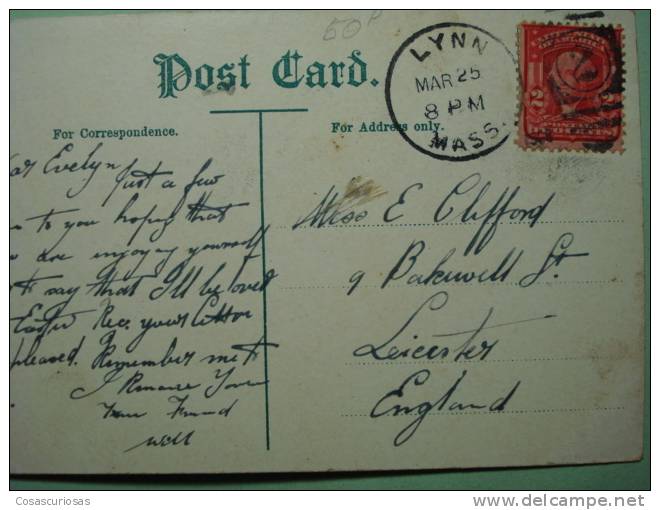 50P
Post Card.
LYNN
MAR 25
8 PM
MASS.
2
POSTAGE
TWO CENTS
For Correspondence.
For Address only.
ar Evelyn
Just a few
to you hoping that
are enjoying yourself
to say that I'll be loved
Rec. your letter
pleased. Remember me t
I Remane Your
True Friend
Will
Miss E Clifford
9 Bakewell St.
Leicester
England
Cosascuriosas
delcampe.net